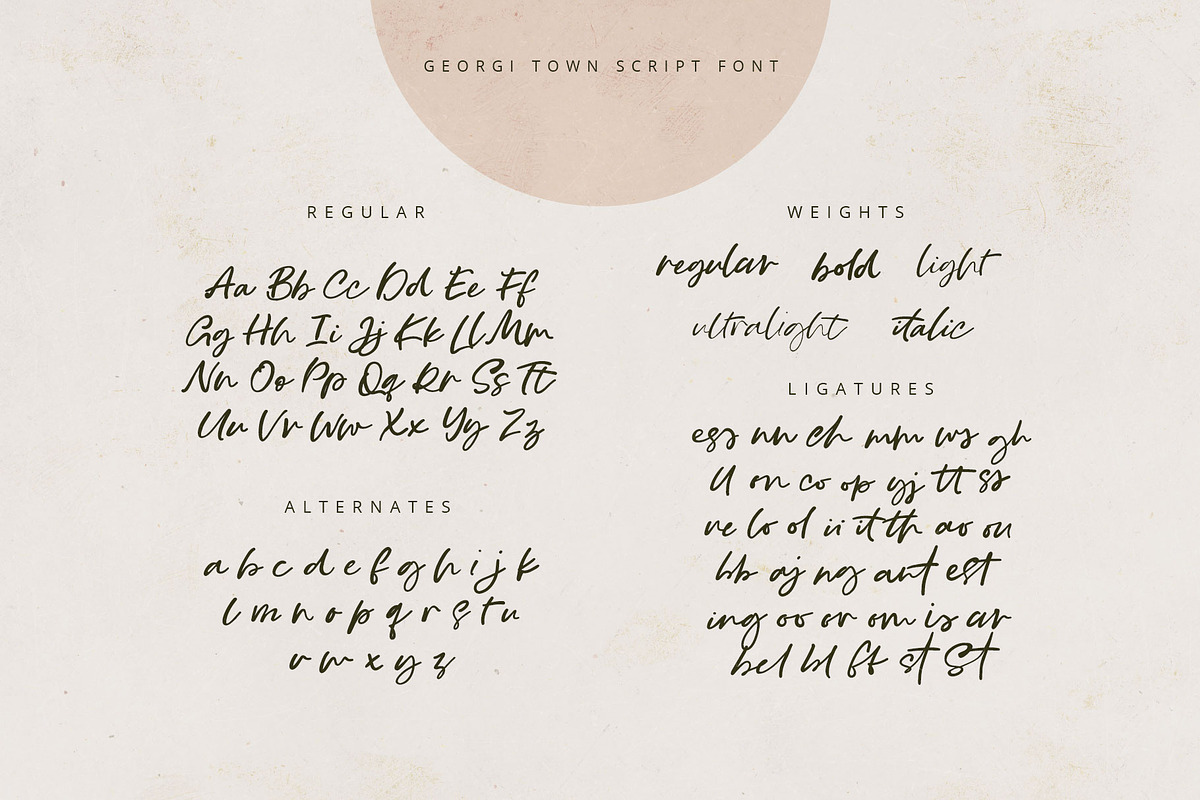 GEORGI TOWN SCRIPT FONT
REGULAR
Aa Bb Cc Dd Ee Ff
Gg Hh Ii Jj Kk Ll Mm
Nn Oo Pp Qq Rr Ss Tt
Uu Vv Ww Xx Yy Zz
ALTERNATES
a b c d e f g h i j k
l m n o p q r s t u
v w x y z
WEIGHTS
regular bold light
ultralight italic
LIGATURES
ess nn ch mm ws gh
ll on co op yj tt ss
ve lo ol ii it th ao ou
bb aj ng ant est
ing oo or om is ar
bel bl ff st St